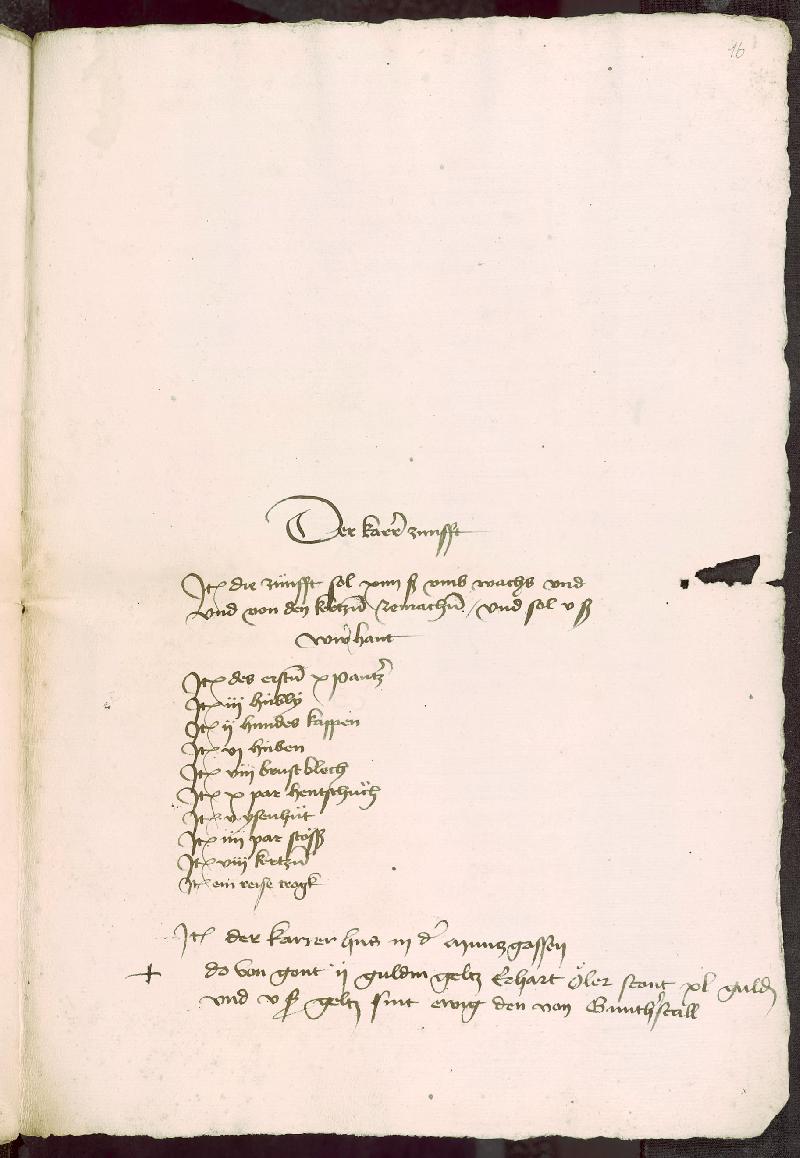 16
Der karrer zunfft
Item die zúnfft sol xiiii ß umb wachs und
und von den kertzen ze machen / und sol v ß
Item des ersten x Pantzer
Item iii húbly
Item ii hundes kappen
Item vi huben
Item viii brust blech
Item x par hentschúch
Item v ysenhút
Item iiii par stöß
Item viii kertzen
Item ein reise trogk
Item der karrer hus in der Muntzgassen
do von gont ii guldin geltz Erhart Öler stont xl guld
und v ß geltz sint ewig den von Gunterstall